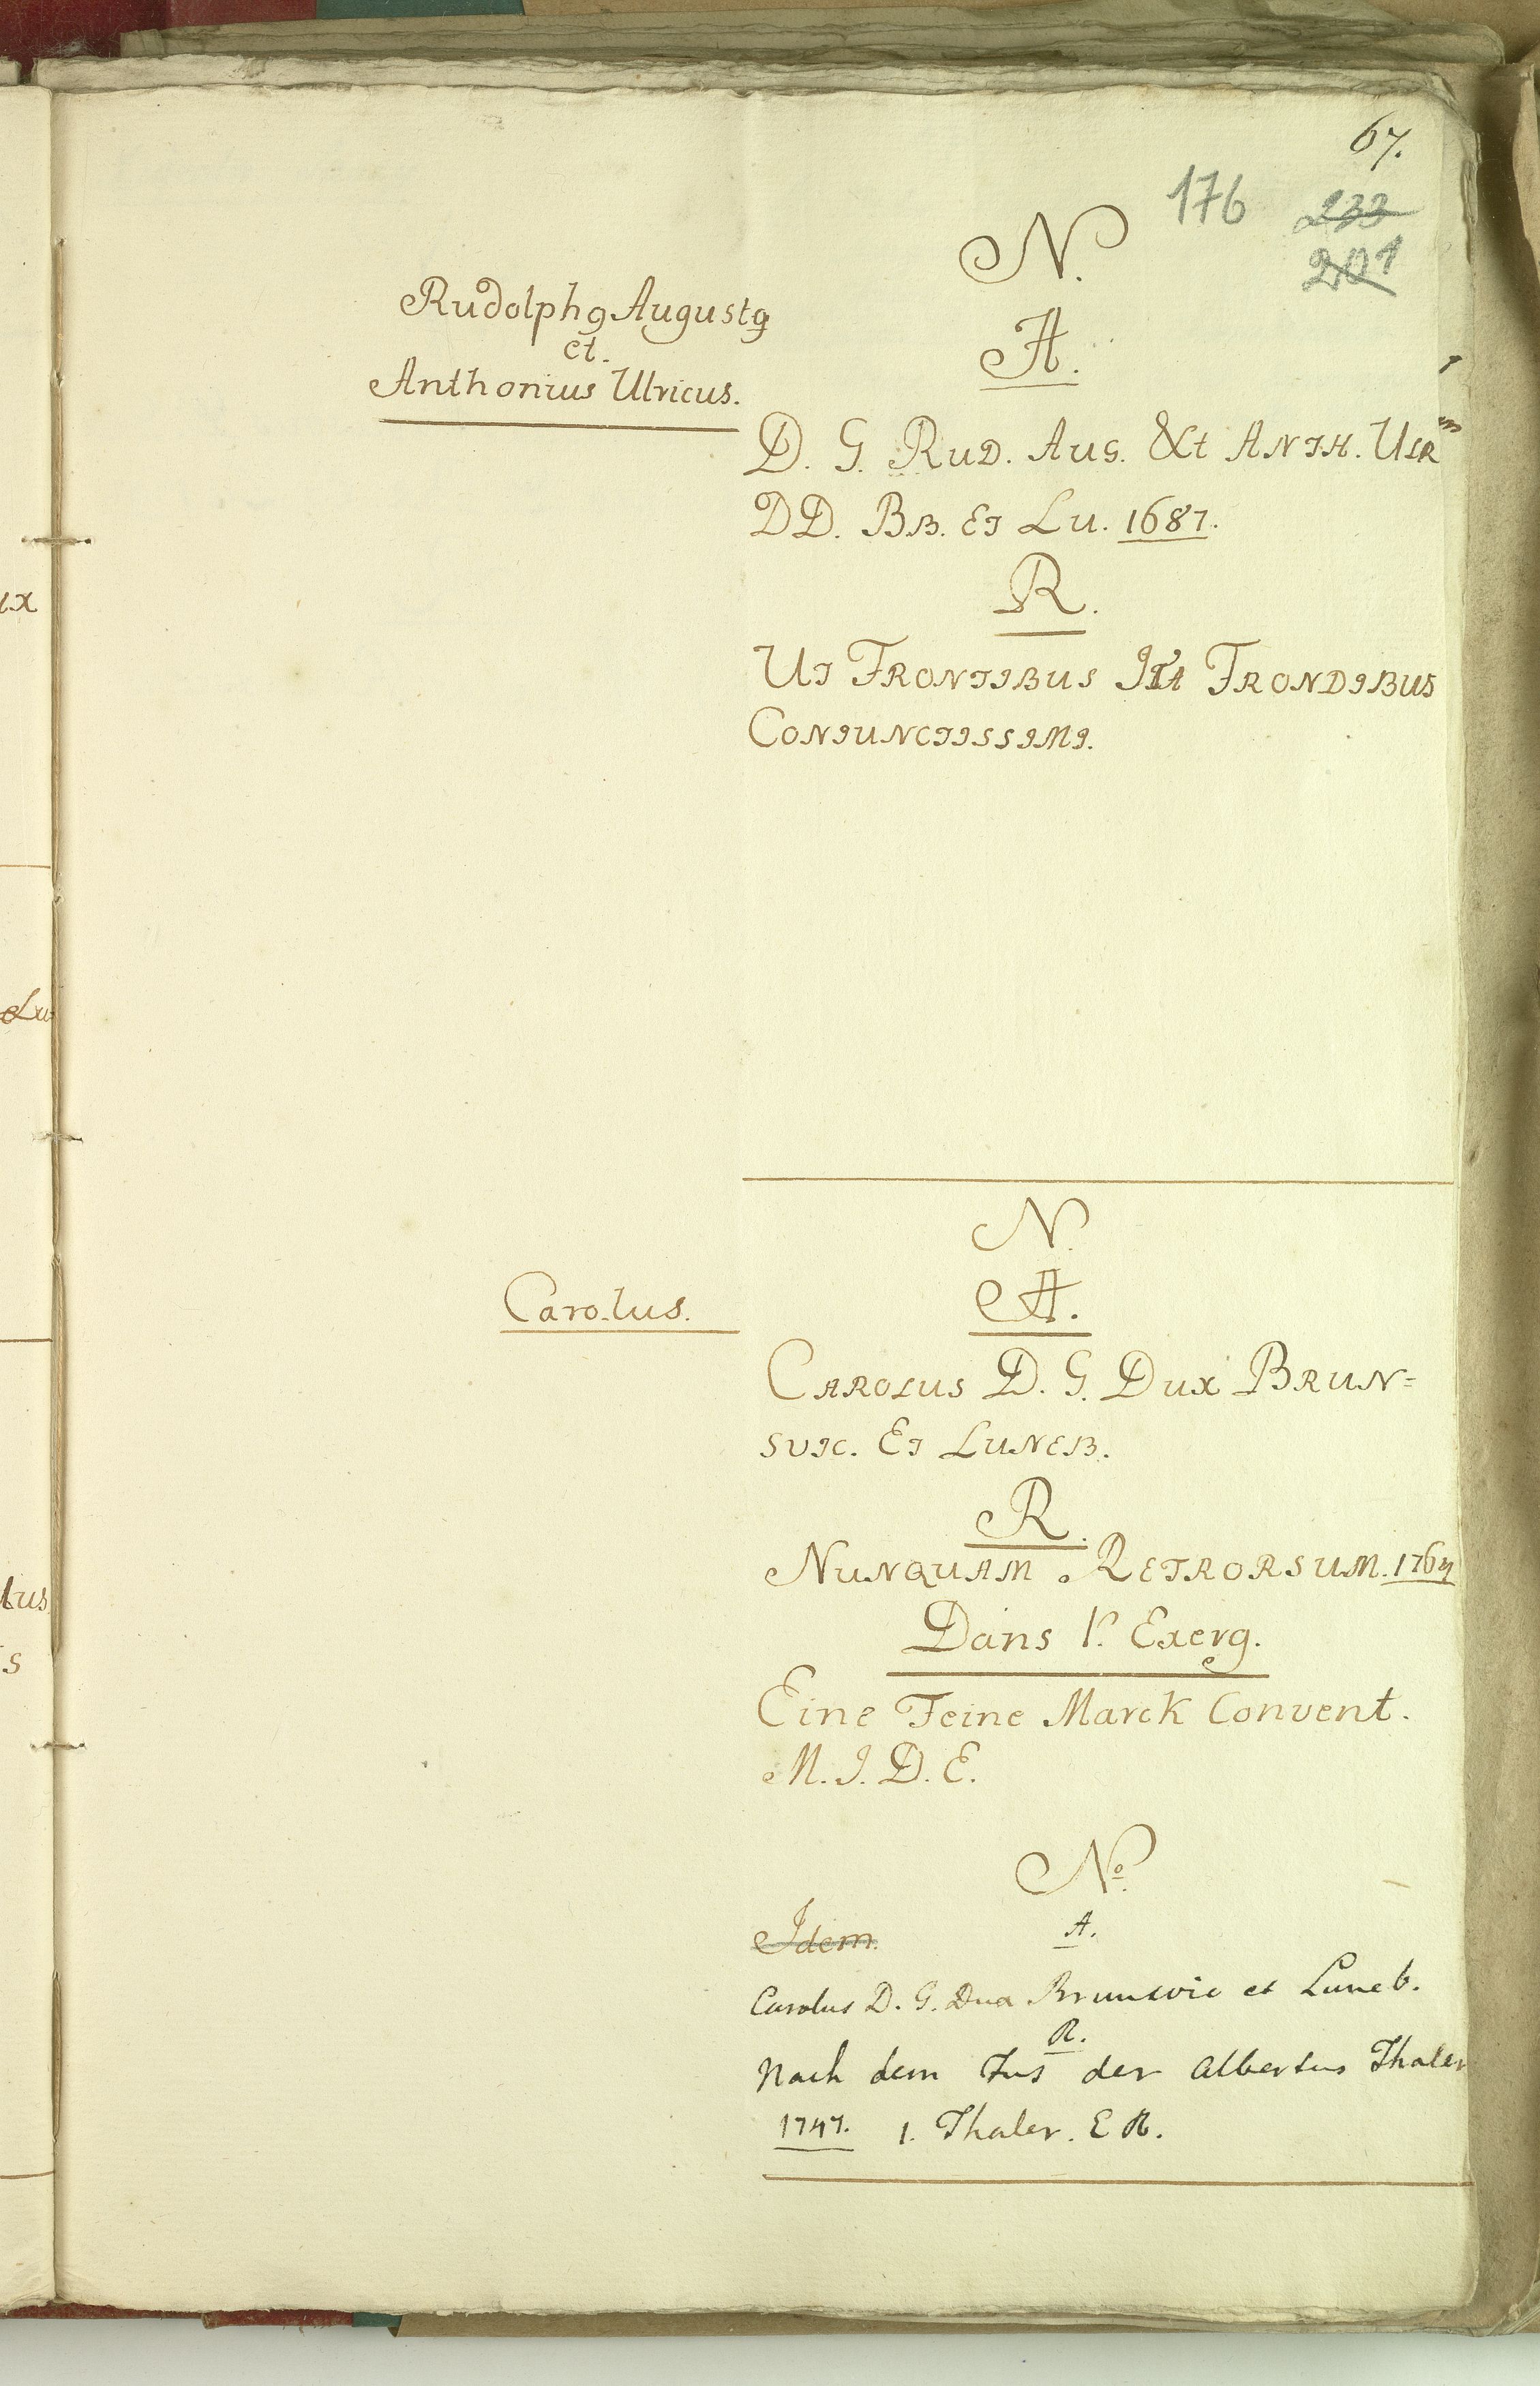 67.
176 233
201
N.
Rudolphꝰ Augustꝰ
et.
Anthonius Ulricus.
A.
D. G. RUD. AUG. Et ANTH. ULR
DD. BB. ET LU. 1687.
R.
UT FRONTIBUS ITA FRONDIBUS
CONIUNCTISSIMI.
N.
Carolus.
A.
CAROLUS D. G. DUX BRUN=
SVIC. ET LUNEB.
R.
NUNQUAM RETRORSUM.
Dans l'. Exerg.
Eine Feine Marck Convent.
M. I. D. E.
No.
Idem.
A.
Carolus D. G. Dux Brunsvic et Luneb.
R.
Nach dem Fus der Albertus Thaler
1747. 1. Thaler. E R.
ux
Lu
tus
s